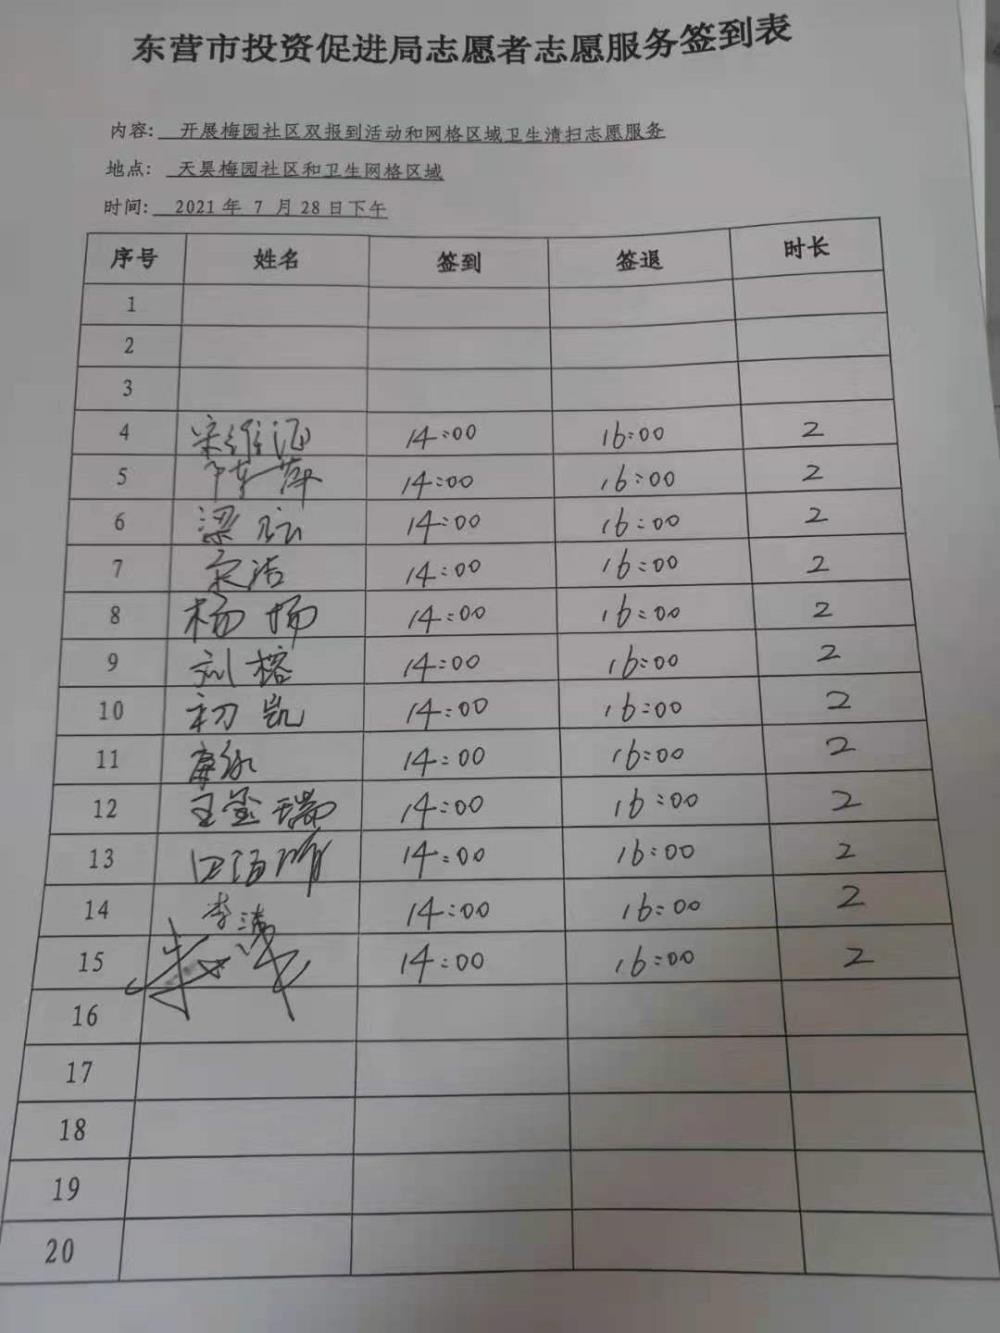 东营市投资促进局志愿者志愿服务签到表
内容: 开展梅园社区双报到活动和网格区域卫生清扫志愿服务
地点: 天昊梅园社区和卫生网格区域
时间: 2021年 7 月28日下午
序号 姓名 签到 签退 时长
1
2
3
4 14:00 16:00 2
5 14:00 16:00 2
6 梁 14:00 16:00 2
7 14:00 16:00 2
8 杨扬 14:00 16:00 2
9 刘榕 14:00 16:00 2
10 初凯 14:00 16:00 2
11 14:00 16:00 2
12 王金瑞 14:00 16:00 2
13 14:00 16:00 2
14 李涛 14:00 16:00 2
15 14:00 16:00 2
16
17
18
19
20